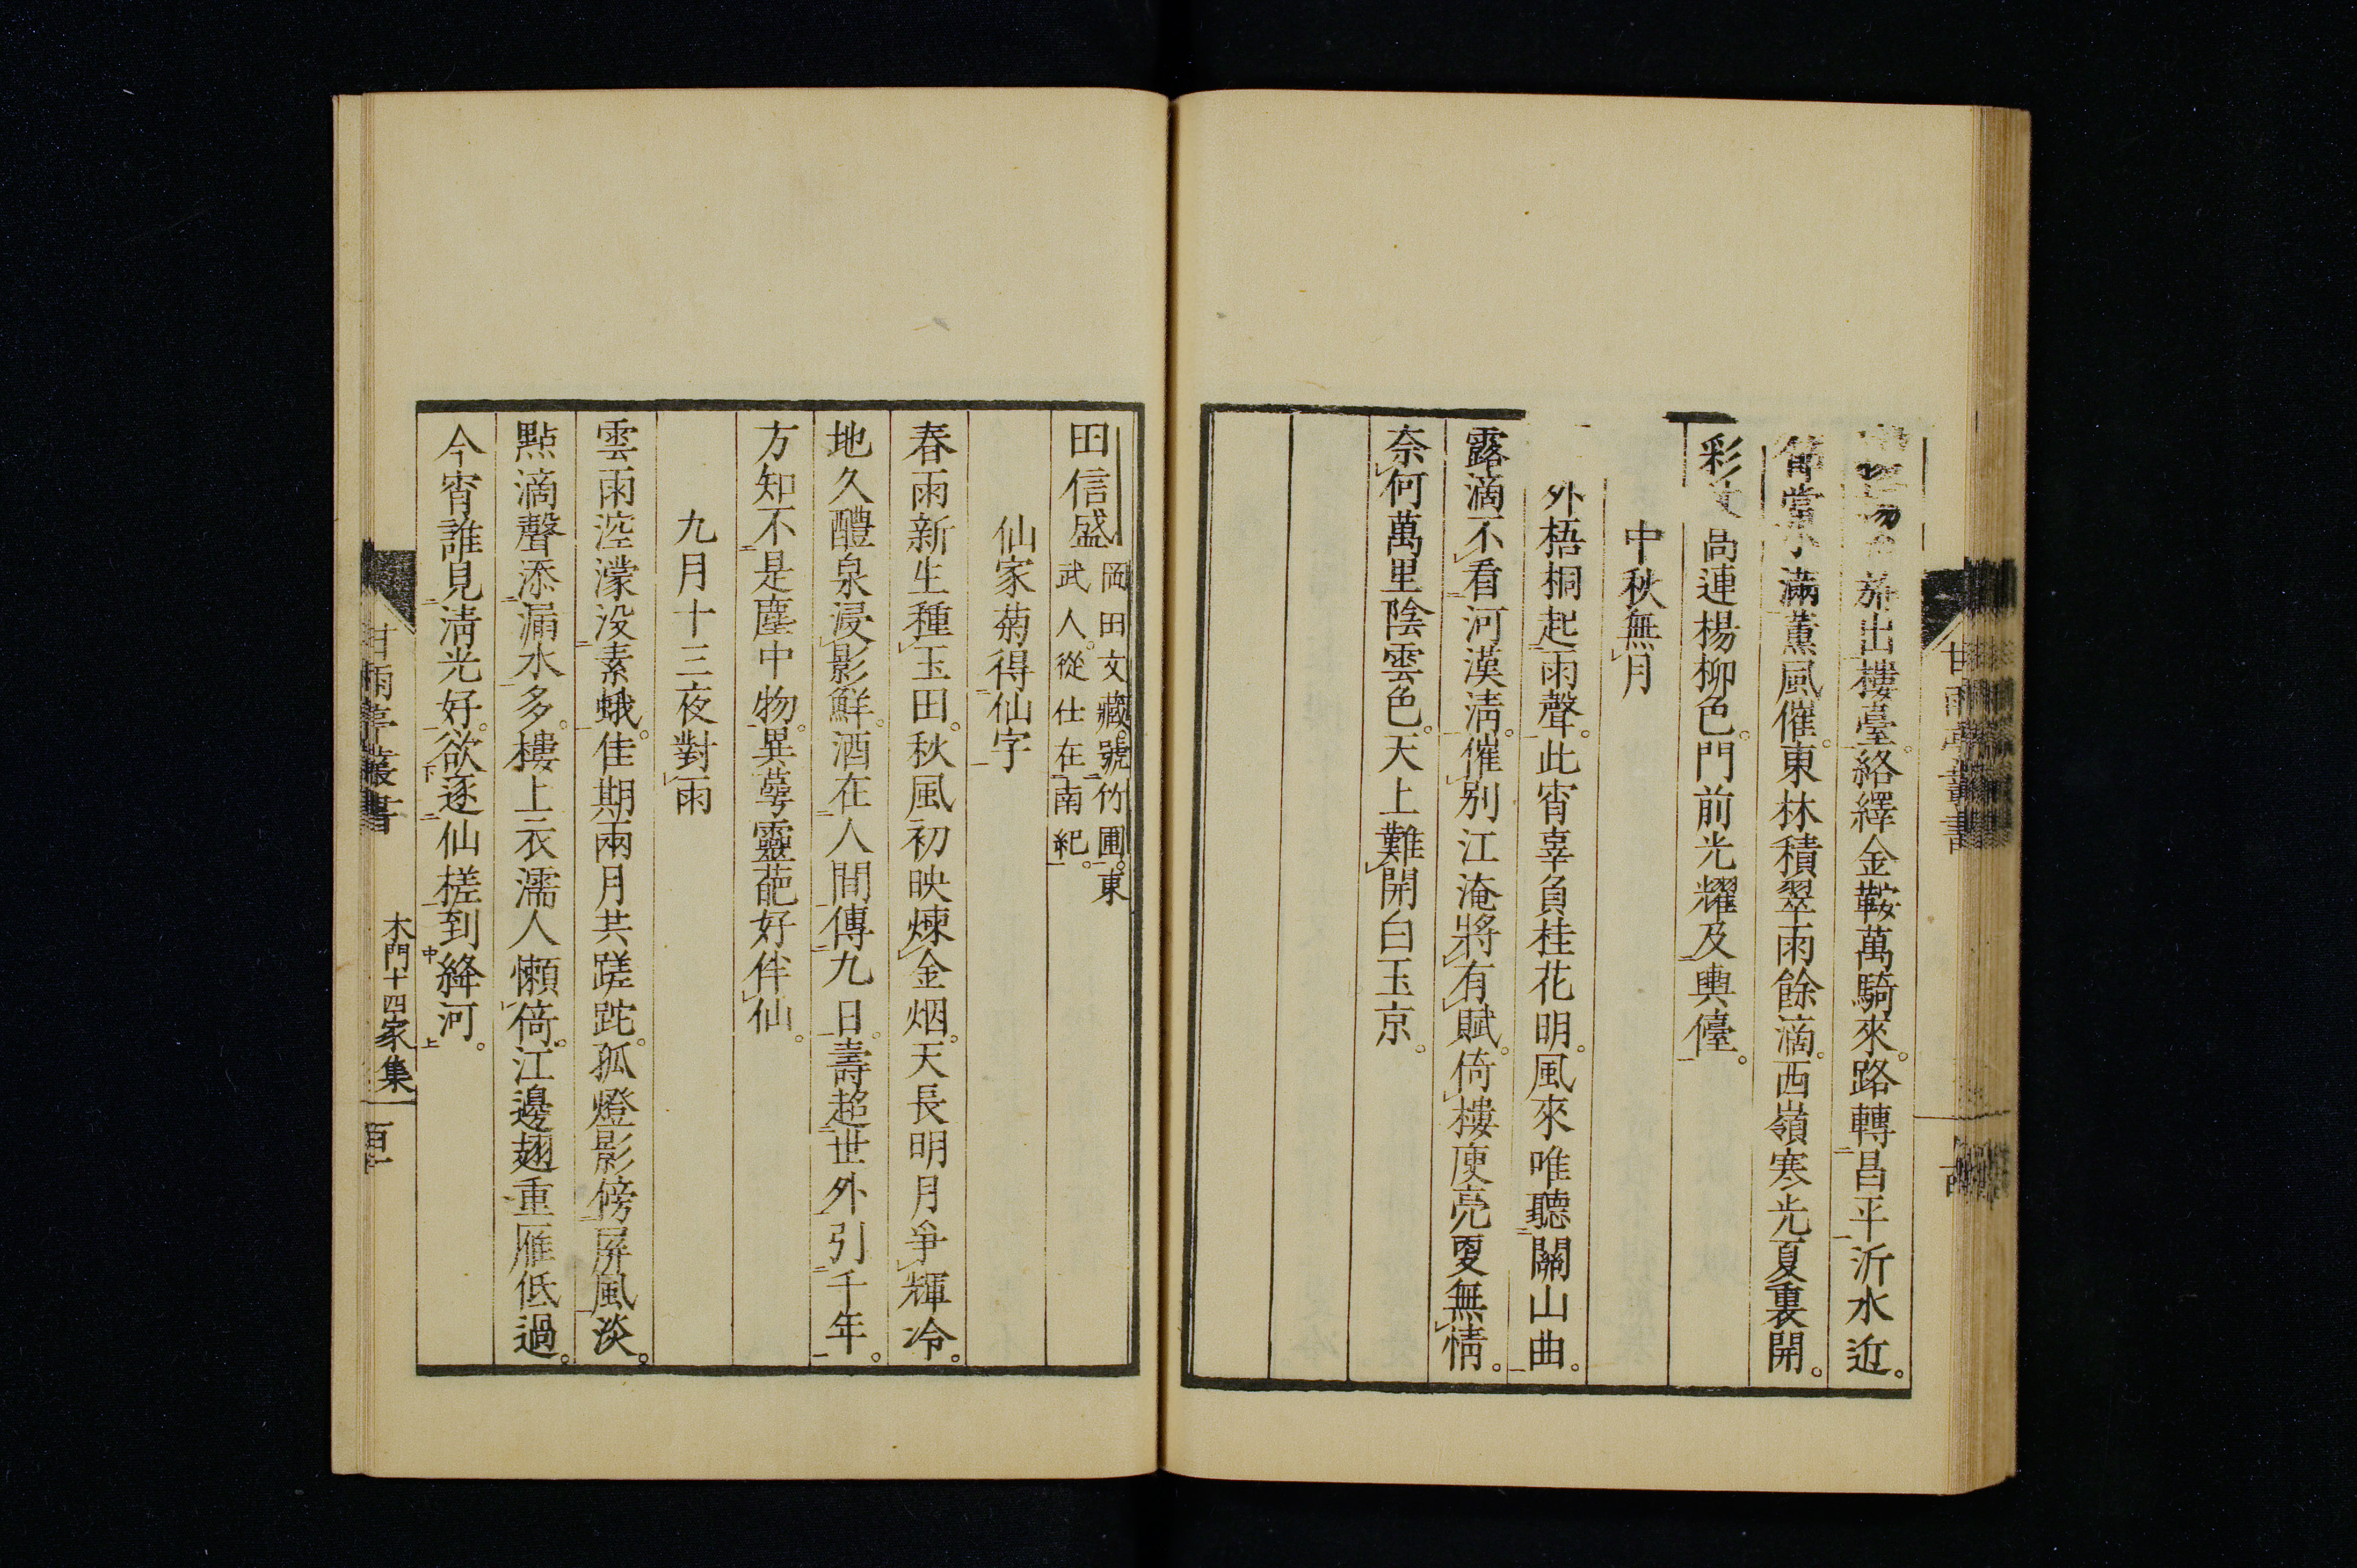 出樓臺。絡繹金鞍萬騎來。路轉昌平沂水近。
滿薰風催。東林積翠雨餘滴。西嶺寒光夏裏開。
彩 尚連楊柳色。門前光耀及輿儓。
中秋無月
外梧桐起雨聲。此宵辜負桂花明。風來唯聽關山曲。
露滴不看河漢淸。催別江淹將有賦。倚樓庾亮夐無情。
奈何萬里陰雲色。天上難開白玉京。
甘雨亭叢書
田信盛
岡田文藏。號竹圃。東
武人。從仕在南紀。
仙家菊得仙字
春雨新生種玉田。秋風初映煉金烟。天長明月爭輝冷。
地久醴泉浸影鮮。酒在人間傳九日。壽超世外引千年。
方知不是塵中物。異蕚靈葩好伴仙。
九月十三夜對雨
雲雨涳濛沒素蛾。佳期兩月共蹉跎。孤燈影傍屏風淡。
點滴聲添漏水多。樓上衣濡人懶倚。江邊翅重雁低過。
今宵誰見淸光好。欲逐仙槎到絳河。
甘雨亭叢書
木門十四家集